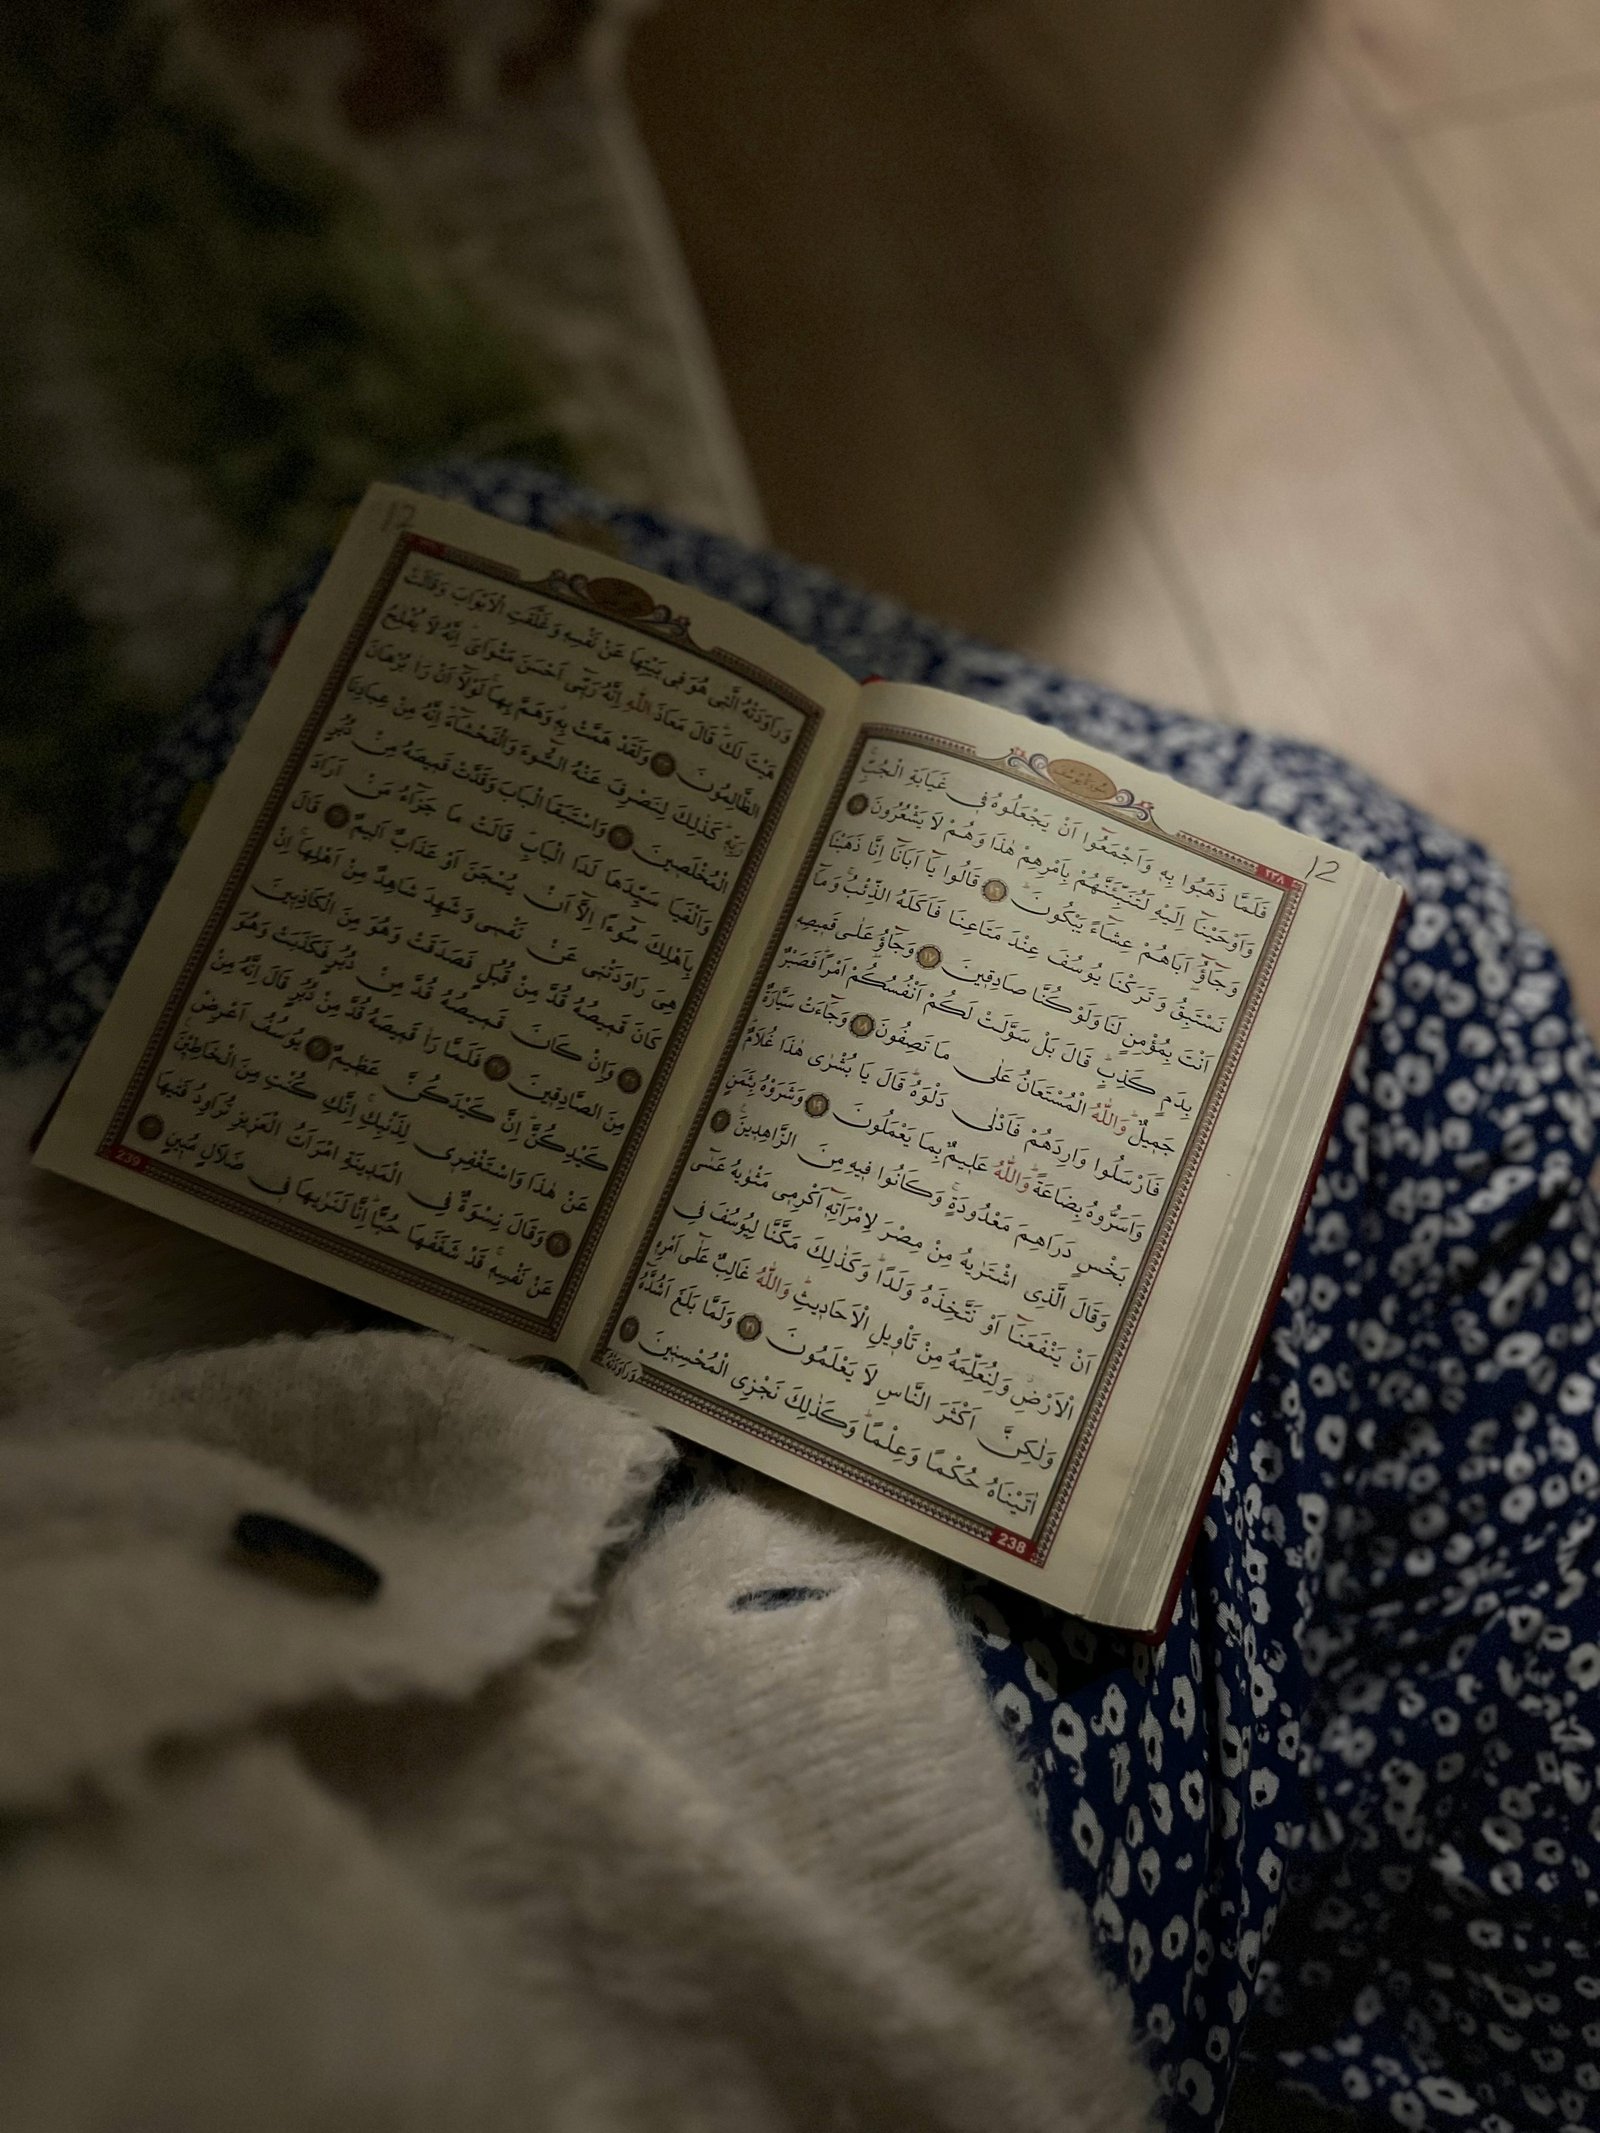 ١٢
٢٣٨
سُورَةُ يُوسُفَ
فَلَمَّا ذَهَبُوا بِهِ وَاَجْمَعُٓوا اَنْ يَجْعَلُوهُ فِى غَيَابَةِ الْجُبِّۚ
وَاَوْحَيْنَٓا اِلَيْهِ لَتُنَبِّئَنَّهُمْ بِاَمْرِهِمْ هٰذَا وَهُمْ لَا يَشْعُرُونَ ١٥
وَجَٓاؤُٓ اَبَاهُمْ عِشَٓاءً يَبْكُونَۜ ١٦ قَالُوا يَٓا اَبَانَٓا اِنَّا ذَهَبْنَا
نَسْتَبِقُ وَتَرَكْنَا يُوسُفَ عِنْدَ مَتَاعِنَا فَاَكَلَهُ الذِّئْبُۚ وَمَٓا
اَنْتَ بِمُؤْمِنٍ لَنَا وَلَوْ كُنَّا صَادِقِينَ ١٧ وَجَٓاؤُ عَلٰى قَمِيصِهِ
بِدَمٍ كَذِبٍۜ قَالَ بَلْ سَوَّلَتْ لَكُمْ اَنْفُسُكُمْ اَمْرًاۜ فَصَبْرٌ
جَمِيلٌۜ وَاللّٰهُ الْمُسْتَعَانُ عَلٰى مَا تَصِفُونَ ١٨ وَجَٓاءَتْ سَيَّارَةٌ
فَاَرْسَلُوا وَارِدَهُمْ فَاَدْلٰى دَلْوَهُۜ قَالَ يَا بُشْرٰى هٰذَا غُلَامٌۜ
وَاَسَرُّوهُ بِضَاعَةًۜ وَاللّٰهُ عَلِيمٌ بِمَا يَعْمَلُونَ ١٩ وَشَرَوْهُ بِثَمَنٍ
بَخْسٍ دَرَاهِمَ مَعْدُودَةٍۚ وَكَانُوا فِيهِ مِنَ الزَّاهِدِينَ۟ ٢٠
وَقَالَ الَّذِى اشْتَرٰيهُ مِنْ مِصْرَ لِامْرَاَتِهِٓ اَكْرِمِى مَثْوٰيهُ عَسٰٓى
اَنْ يَنْفَعَنَٓا اَوْ نَتَّخِذَهُ وَلَدًاۜ وَكَذٰلِكَ مَكَّنَّا لِيُوسُفَ فِى
الْاَرْضِۘ وَلِنُعَلِّمَهُ مِنْ تَأْوِيلِ الْاَحَادِيثِۜ وَاللّٰهُ غَالِبٌ عَلٰٓى اَمْرِهِ
وَلٰكِنَّ اَكْثَرَ النَّاسِ لَا يَعْلَمُونَ ٢١ وَلَمَّا بَلَغَ اَشُدَّهُٓ
اٰتَيْنَاهُ حُكْمًا وَعِلْمًاۜ وَكَذٰلِكَ نَجْزِى الْمُحْسِنِينَ ٢٢
وَرَاوَدَتْهُ
238
12
وَرَاوَدَتْهُ الَّتِى هُوَ فِى بَيْتِهَا عَنْ نَفْسِهِ وَغَلَّقَتِ الْاَبْوَابَ وَقَالَتْ
هَيْتَ لَكَۜ قَالَ مَعَاذَ اللّٰهِ اِنَّهُ رَبِّٓى اَحْسَنَ مَثْوَاىَۜ اِنَّهُ لَا يُفْلِحُ
الظَّالِمُونَ ٢٣ وَلَقَدْ هَمَّتْ بِهِ وَهَمَّ بِهَاۚ لَوْلَٓا اَنْ رَاٰ بُرْهَانَ
رَبِّهِۜ كَذٰلِكَ لِنَصْرِفَ عَنْهُ السُّٓوءَ وَالْفَحْشَٓاءَۜ اِنَّهُ مِنْ عِبَادِنَا
الْمُخْلَصِينَ ٢٤ وَاسْتَبَقَا الْبَابَ وَقَدَّتْ قَمِيصَهُ مِنْ دُبُرٍ
وَاَلْفَيَا سَيِّدَهَا لَدَا الْبَابِۜ قَالَتْ مَا جَزَٓاءُ مَنْ اَرَادَ
بِاَهْلِكَ سُٓوءًا اِلَّٓا اَنْ يُسْجَنَ اَوْ عَذَابٌ اَلِيمٌ ٢٥ قَالَ
هِىَ رَاوَدَتْنِى عَنْ نَفْسِى وَشَهِدَ شَاهِدٌ مِنْ اَهْلِهَاۚ اِنْ
كَانَ قَمِيصُهُ قُدَّ مِنْ قُبُلٍ فَصَدَقَتْ وَهُوَ مِنَ الْكَاذِبِينَ
٢٦ وَاِنْ كَانَ قَمِيصُهُ قُدَّ مِنْ دُبُرٍ فَكَذَبَتْ وَهُوَ
مِنَ الصَّادِقِينَ ٢٧ فَلَمَّا رَاٰ قَمِيصَهُ قُدَّ مِنْ دُبُرٍ قَالَ اِنَّهُ مِنْ
كَيْدِكُنَّۜ اِنَّ كَيْدَكُنَّ عَظِيمٌ ٢٨ يُوسُفُ اَعْرِضْ
عَنْ هٰذَا وَاسْتَغْفِرِى لِذَنْبِكِۚ اِنَّكِ كُنْتِ مِنَ الْخَاطِـِٔينَ۟
٢٩ وَقَالَ نِسْوَةٌ فِى الْمَدِينَةِ امْرَاَتُ الْعَزِيزِ تُرَاوِدُ فَتٰيهَا
عَنْ نَفْسِهِۚ قَدْ شَغَفَهَا حُبًّاۜ اِنَّا لَنَرٰيهَا فِى ضَلَالٍ مُبِينٍ ٣٠
239